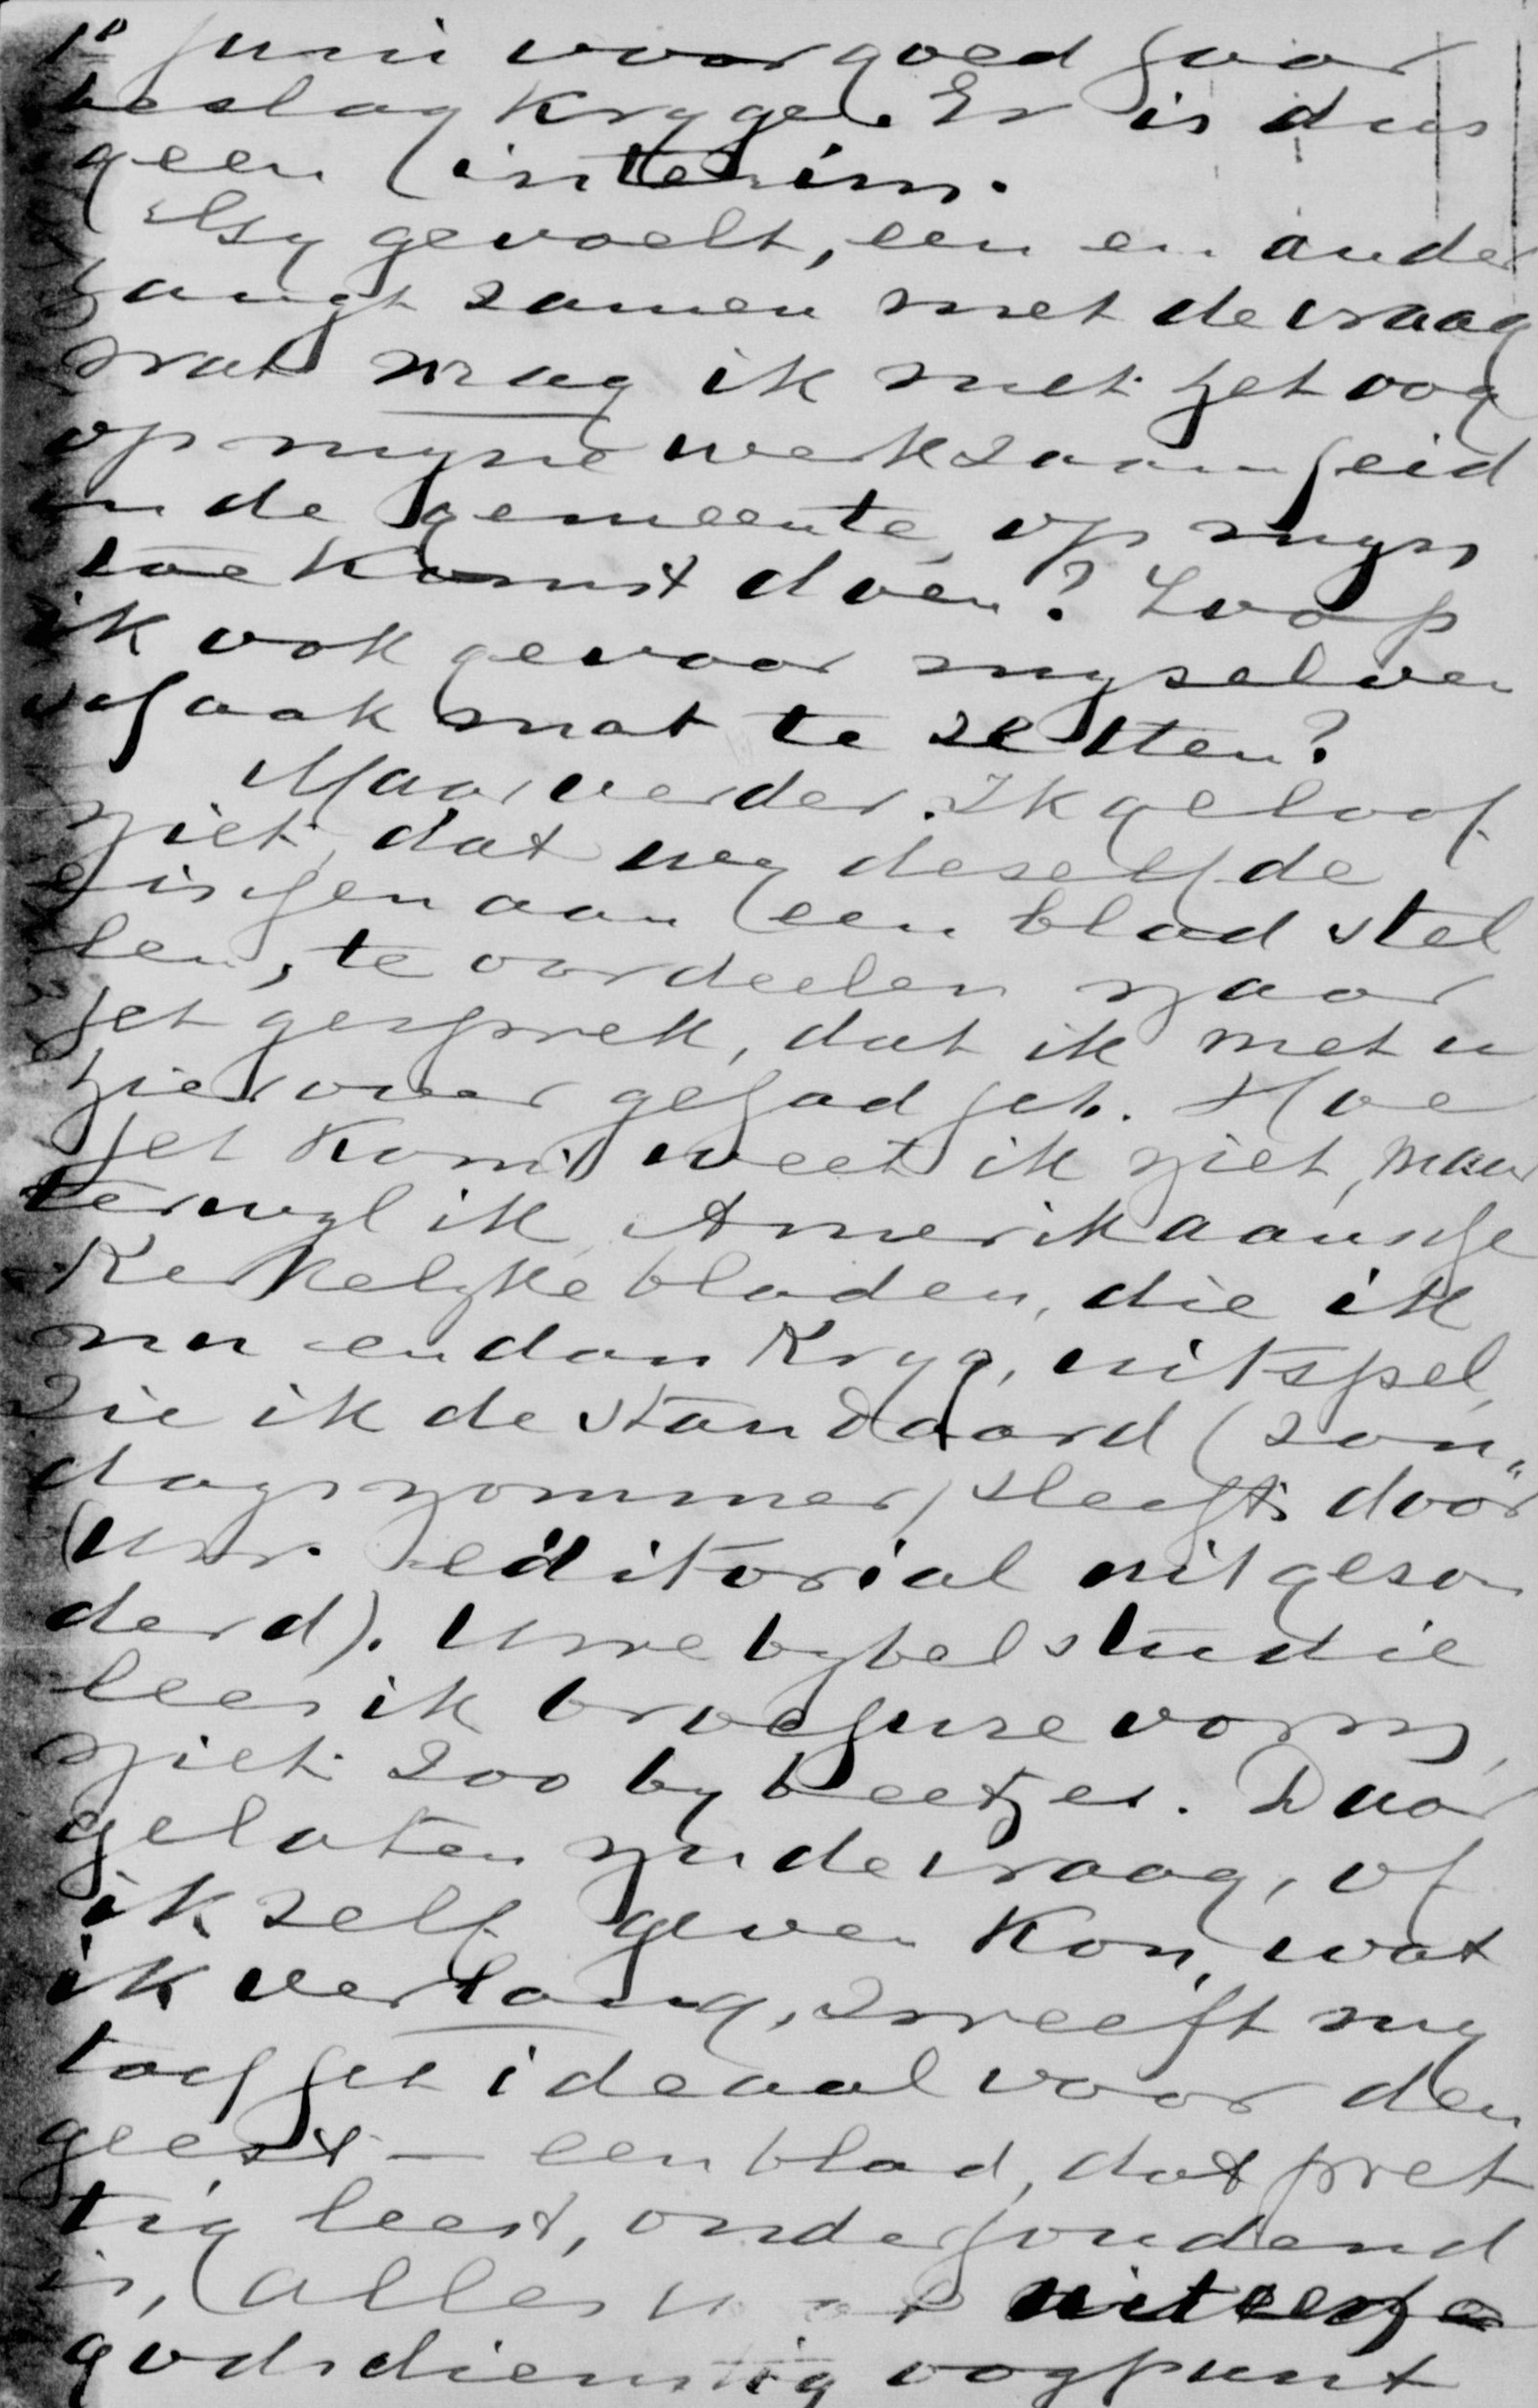 1º Juni voor goed haar
beslag krygen. Er is dus
geen interim.
Gy gevoelt, een en ander
hangt samen met de vraag
wat mag ik met het oog
op myne werkzaamheid
in de gemeente, op myn
toekomst doen? Loop
ik ook gevaar myselven
schaakmat te zetten?
Maar verder. Ik geloof
niet, dat wy deselfde
eischen aan een blad stel
len, te oordeelen naar
het gesprek, dat ik met u
hierover gehad heb. Hoe
het komt weet ik niet, maar
terwyl ik Amerikaansche
Kerkelyke bladen, die ik
nu en dan kryg, uitspel,
zie ik de Standaard (zon„
dagsnommer) slechts door
(uw editorial uitgeson
derd). Uwe bybelstudie
lees ik brochurevorm,
niet zoo by beetjes. Daar
gelaten nu de vraag, of
ik zelf geven kon, wat
ik verlang, zweeft my
toch het ideaal voor den
geest — een blad, dat pret
tig leest, onderhoudend
is, alles uit
godsdienstig oogpunt